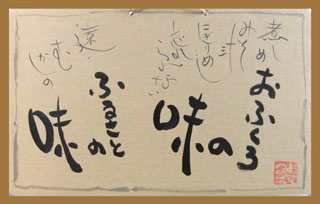 煮しめ
みそ汁
にぎりめし
忘れられない
おふくろ
の
味
遠い
むかしの
ふるさと
の
味